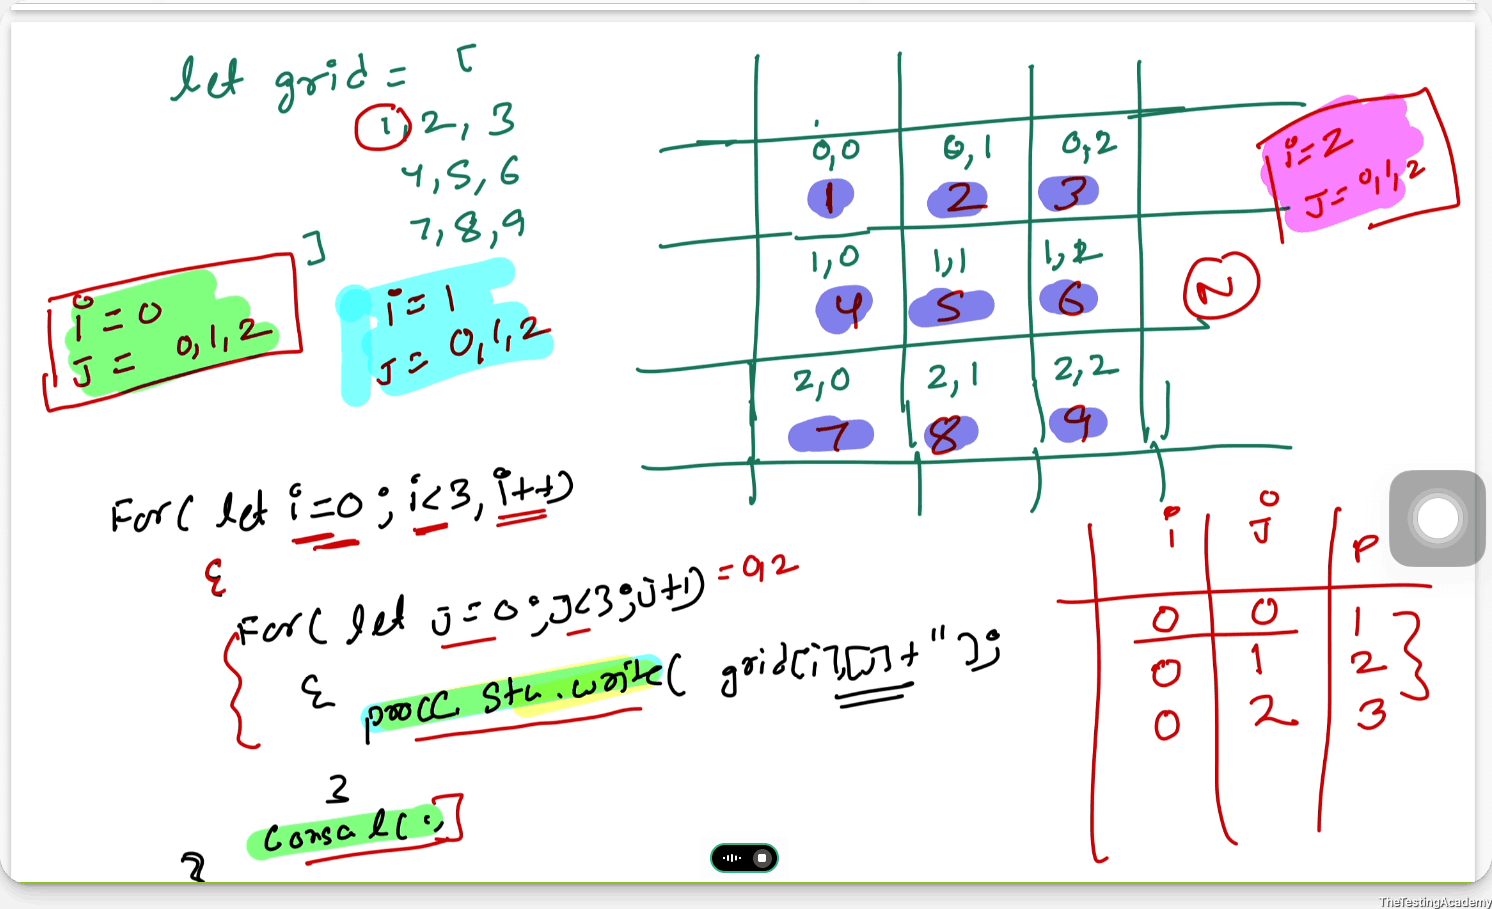 let grid = [
1, 2, 3
4, 5, 6
7, 8, 9
]
i = 0
J = 0, 1, 2
i = 1
J = 0, 1, 2
0,0 0,1 0,2
1 2 3
1,0 1,1 1,2
4 5 6
2,0 2,1 2,2
7 8 9
i = 2
J = 0, 1, 2
N
For( let i=0; i<3, i++)
{
For( let j=0; J<3; j++) = 0,2
{ procc. Std.write( grid[i],[j]+ " );
}
Consol(;)
}
i J P
0 0 1
0 1 2
0 2 3
TheTestingAcademy